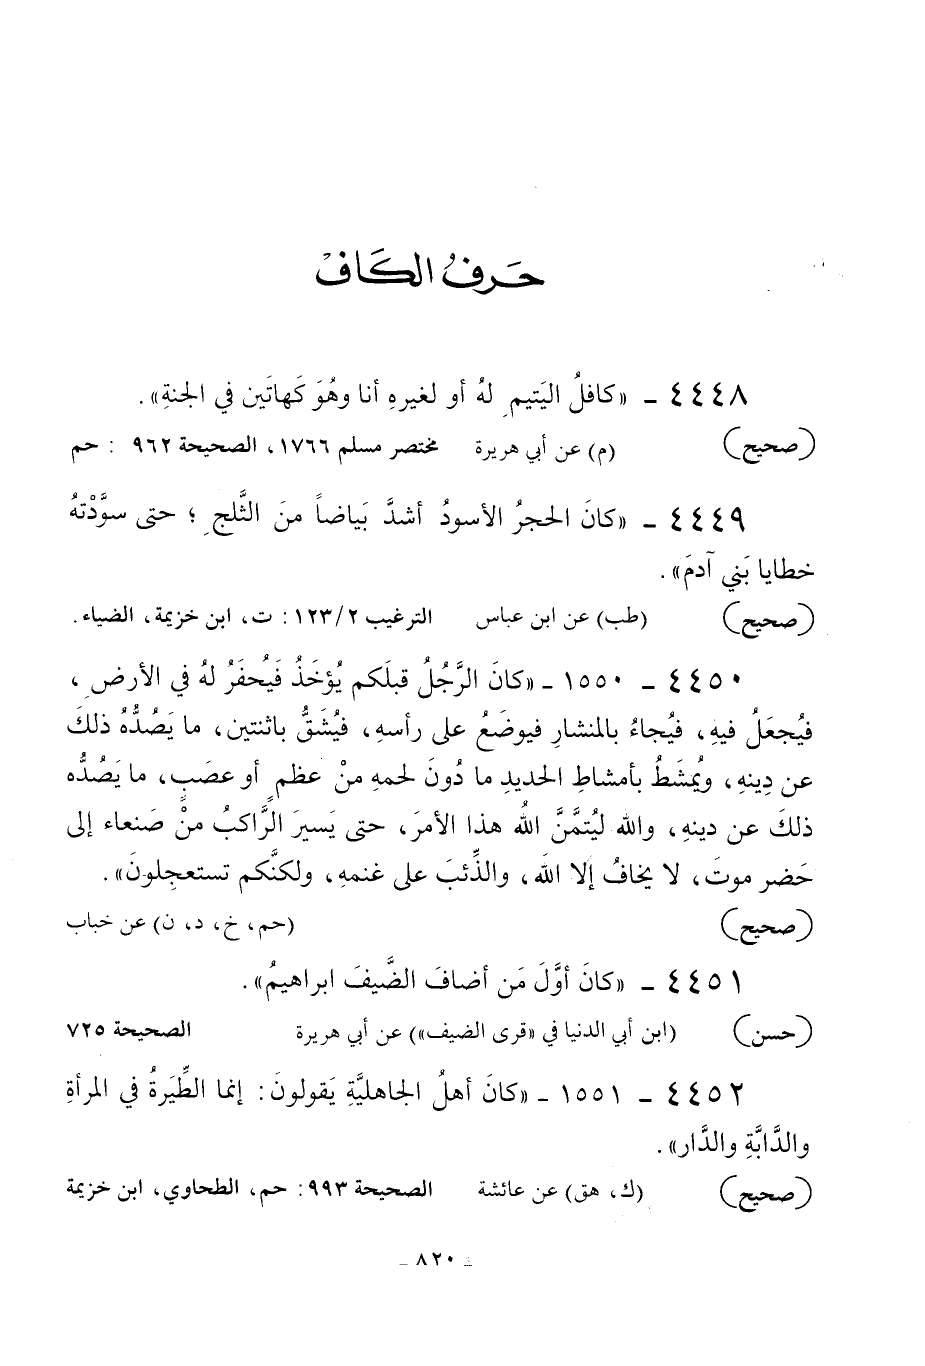 حَرفُ الكَافْ
٤٤٤٨ ـ «كافلُ اليَتيمِ لهُ أو لغيرهِ أنا وهُوَ كَهاتَين في الجنةِ» .
(صحيح) (م) عن أبي هريرة مختصر مسلم ١٧٦٦، الصحيحة ٩٦٢ : حم
٤٤٤٩ ـ «كانَ الحجرُ الأسودُ أشدَّ بَياضاً منَ الثَّلجِ ؛ حتى سوَّدْتهُ
خطايا بَني آدمَ» .
(صحيح) (طب) عن ابن عباس الترغيب ١٢٣/٢ : ت، ابن خزيمة، الضياء .
٤٤٥٠ ـ ١٥٥٠ ـ «كانَ الرَّجُلُ قبلَكم يُؤخَذُ فَيُحفَرُ لهُ في الأرضِ ،
فيُجعَلُ فيهِ، فيُجاءُ بالمنشارِ فيوضَعُ على رأسهِ، فيُشَقُّ باثنتين، ما يَصُدُّهُ ذلكَ
عن دِينهِ، ويُمشَطُ بأمشاطِ الحديدِ ما دُونَ لحمهِ منْ عظمٍ أو عصَبٍ، ما يَصُدُّه
ذلكَ عن دينهِ، والله ليُتمَّنَّ اللهُ هذا الأمرَ، حتى يَسيرَ الرَّاكبُ منْ صَنعاء إلى
حَضر موتَ، لا يخافُ إلا اللهَ، والذِّئبَ على غنمهِ، ولكنَّكم تستعجِلونَ» .
(صحيح) (حم، خ، د، ن) عن خباب
٤٤٥١ ـ «كانَ أوَّلَ مَن أضافَ الضَّيفَ ابراهيمُ» .
(حسن) (ابن أبي الدنيا في «قرى الضيف») عن أبي هريرة الصحيحة ٧٢٥
٤٤٥٢ ـ ١٥٥١ ـ «كانَ أهلُ الجاهليَّةِ يَقولونَ: إنما الطِّيَرةُ في المرأةِ
والدَّابَّةِ والدَّار» .
(صحيح) (ك، هق) عن عائشة الصحيحة ٩٩٣ : حم، الطحاوي، ابن خزيمة
ـ ٨٢٠ ـ